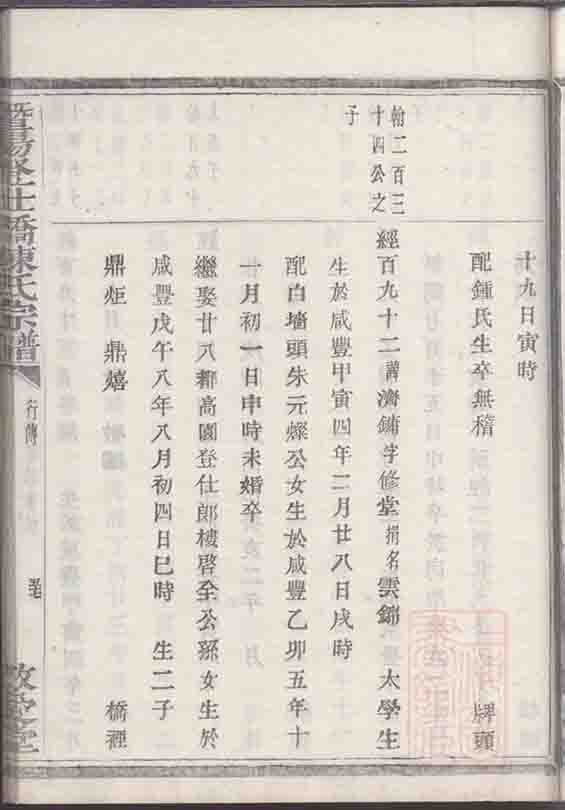 十九日寅時
配鍾氏生卒無稽 牌頭
翰二百三
十四公之
子
經百九十二諱濟鋪字修堂捐名雲錦 太學生
生於咸豐甲寅四年二月廿八日戌時
配白墻頭朱元燦公女生於咸豐乙卯五年十
一月初一日申時未婚卒
繼娶廿八都高園登仕郎樓啓全公孫女生於
咸豐戊午八年八月初四日巳時 生二子
鼎炬 鼎嬉 橋裡
暨陽 仕橋陳氏宗譜
行傳